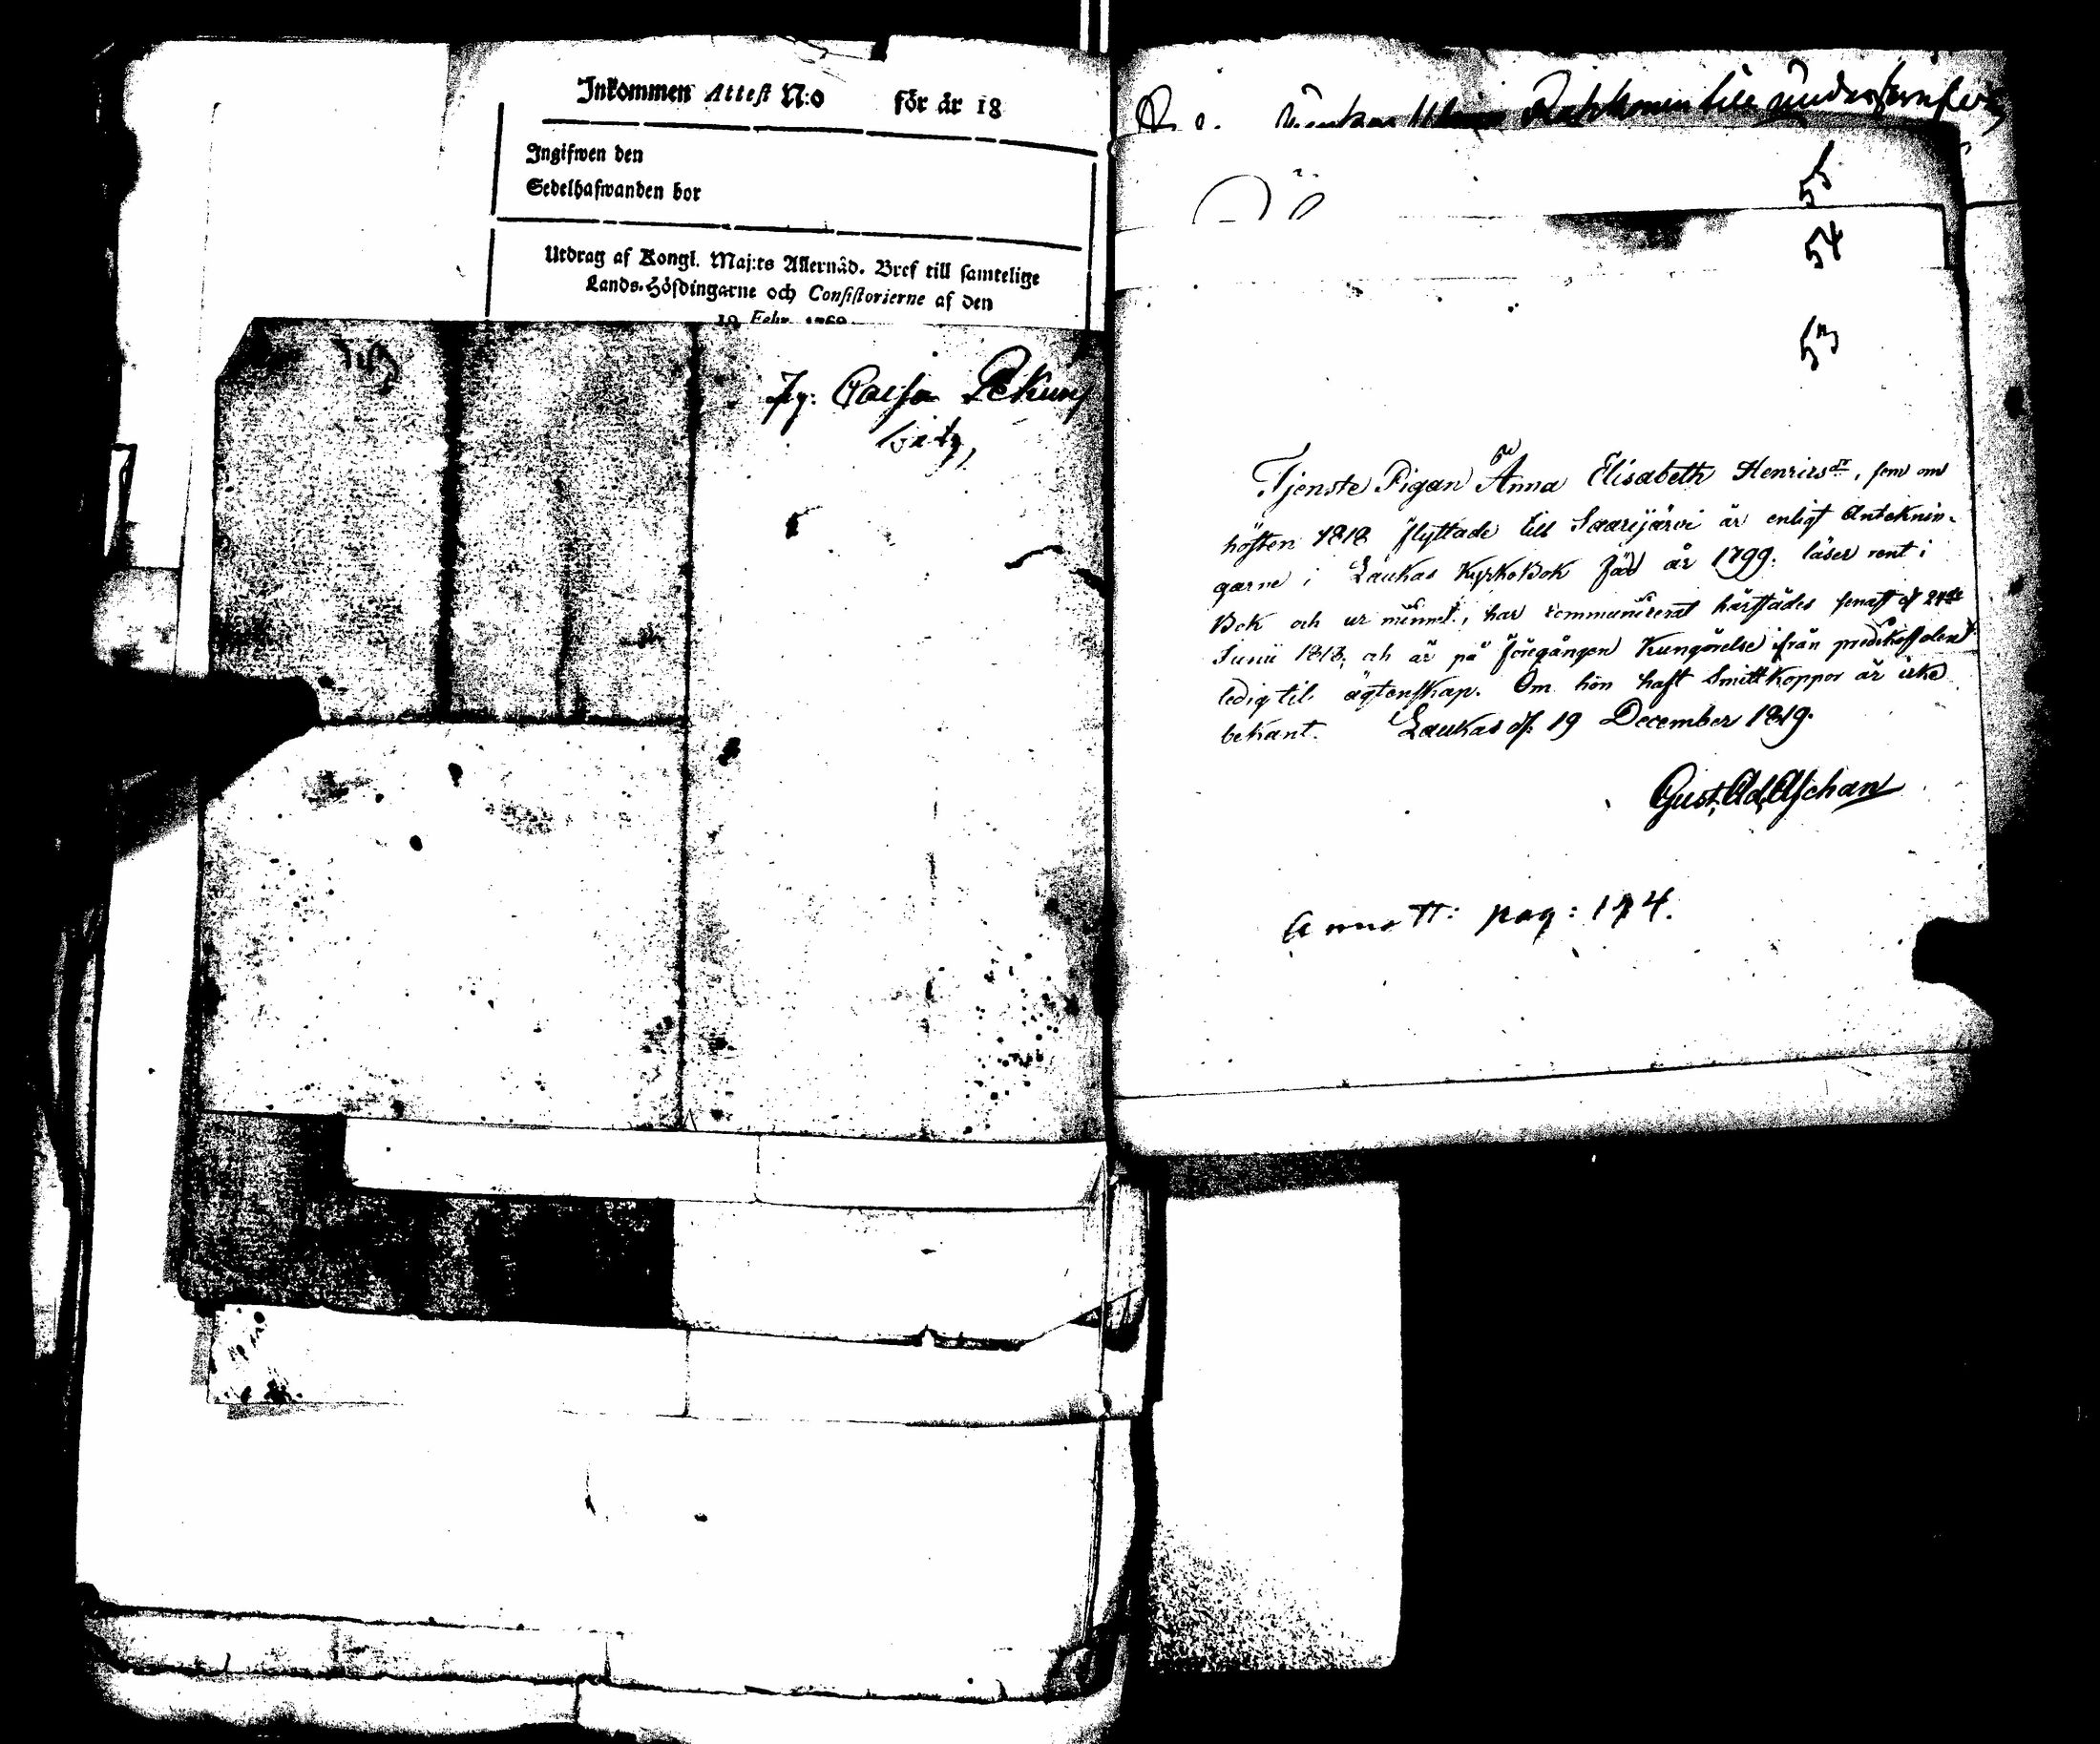 Inkommen Attest N:o för år 18
Ingifwen den
Sedelhafwanden bor
Utdrag af Kongl. Maj:ts Allernåd. Bref till samtelige
Lands-Höfdingarne och Consistorierne af den
Febr.
Pg. Caisa
till
55
54
53
Tjenste Pigan Anna Elisabeth Henricsdr, som om
hösten 1818 flyttade till Saarijärvi är enligt Anteknin-
garne i Laukas KyrkoBok född år 1799: läser rent i
Bok och ur minnet, har communicerat härstädes senast d 24de
Junii 1818, och är på föregången Kungörelse ifrån predikostolen
ledig til ägtenskap. Om hon haft Smittkoppor är icke
bekant. Laukas d. 19 December 1819.
Gust. Ad. Aschan
Annott: pag: 174.